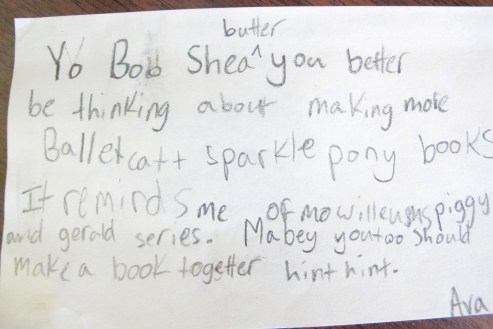 butter
Yo Bob Shea ^ you better
be thinking about making more
Ballet catt sparkle pony books
It reminds me of mo willeums piggy
and gerald series. Mabey you too should
make a book togetter hint hint.
Ava